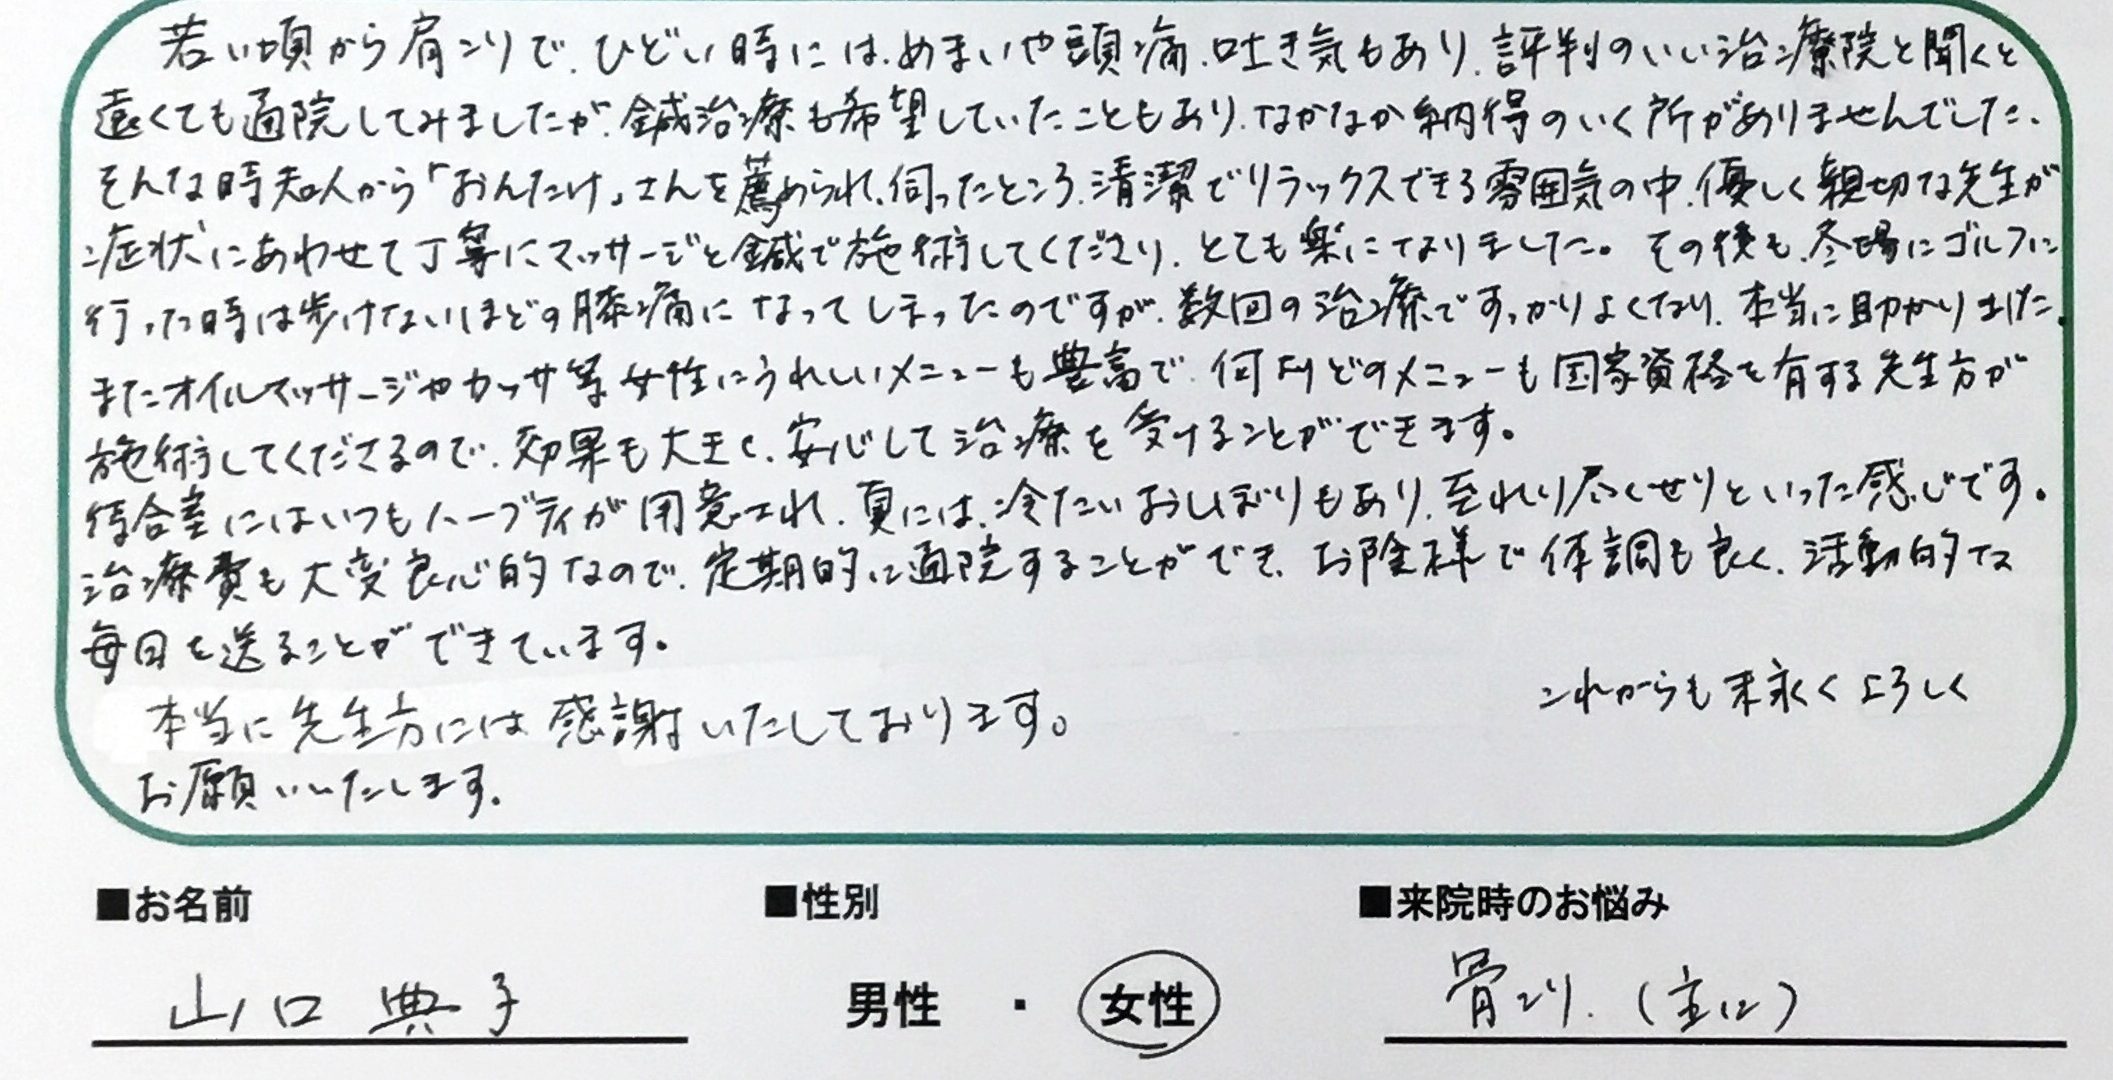 若い頃から肩こりで、ひどい時には、めまいや頭痛、吐き気もあり、評判のいい治療院と聞くと
遠くても通院してみましたが、鍼治療も希望していたこともあり、なかなか納得のいく所がありませんでした、
そんな時知人から「おんたけ」さんを薦められ、伺ったところ、清潔でリラックスできる雰囲気の中、優しく親切な先生が
症状にあわせて丁寧にマッサージと鍼で施術してくださり、とても楽になりました。その後も、冬場にゴルフに
行った時は歩けないほどの膝痛になってしまったのですが、数回の治療ですっかりよくなり、本当に助かりました。
またオイルマッサージやカッサ等女性にうれしいメニューも豊富で、何よりどのメニューも国家資格を有する先生方が
施術してくださるので、効果も大きく、安心して治療を受けることができます。
待合室にはいつもハーブティが用意され、夏には、冷たいおしぼりもあり、至れり尽くせりといった感じです。
治療費も大変良心的なので、定期的に通院することができ、お陰様で体調も良く、活動的な
毎日を送ることができています。
本当に先生方には感謝いたしております。
これからも末永くよろしく
お願いいたします。
■お名前 ■性別 ■来院時のお悩み
山口 典子 男性 ・ 女性 肩こり、(主に)